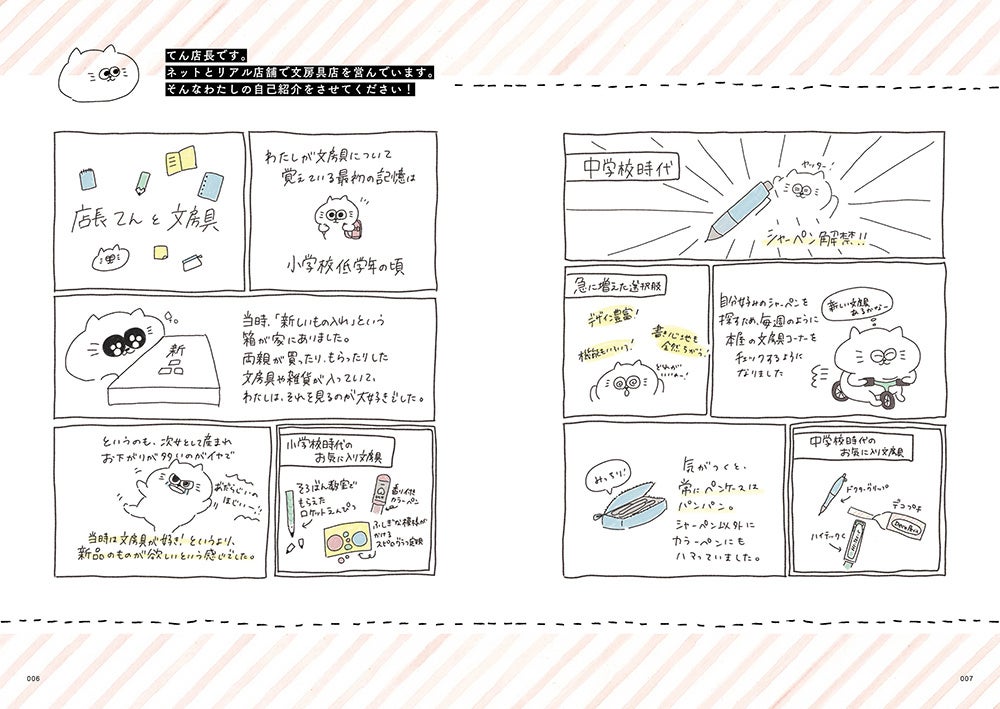 てん店長です。
ネットとリアル店舗で文房具店を営んでいます。
そんなわたしの自己紹介をさせてください！
店長てんと文房具
わたしが文房具について
覚えている最初の記憶は
小学校低学年の頃
新
当時、「新しいもの入れ」という
箱が家にありました。
両親が買ったり、もらったりした
文房具や雑貨が入っていて、
わたしは、それを見るのが大好きでした。
というのも、次女として産まれ
お下がりが多いのがイヤで
あたらしいの
ほしいー!!
当時は文房具が好き！というより、
新品のものが欲しいという感じでした。
小学校時代の
お気に入り文房具
そろばん教室で
もらえた
ロケットえんぴつ
香り付き
カラーペン
ふしぎな模様が
かける
スピログラフ定規
006
中学校時代
ヤッター！
シャーペン解禁!!
急に増えた選択肢
デザイン豊富！
機能もいろいろ！
書き心地も
全然ちがう！
どれが
いいの〜！
自分好みのシャーペンを
探すため、毎週のように
本屋の文房具コーナーを
チェックするように
なりました
新しい文房具
あるかな〜
みっちり！
気がつくと、
常にペンケースは
パンパン。
シャーペン以外に
カラーペンにも
ハマっていました。
中学校時代の
お気に入り文房具
ドクターグリップ
デコプチ
ハイテークC
007